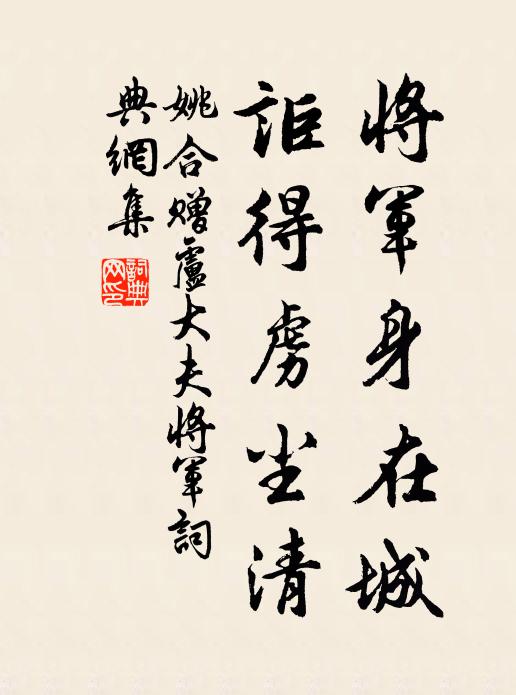 將軍身在城
詎得虜塵清
姚合贈盧大夫將軍詞
典網集
詞典网印